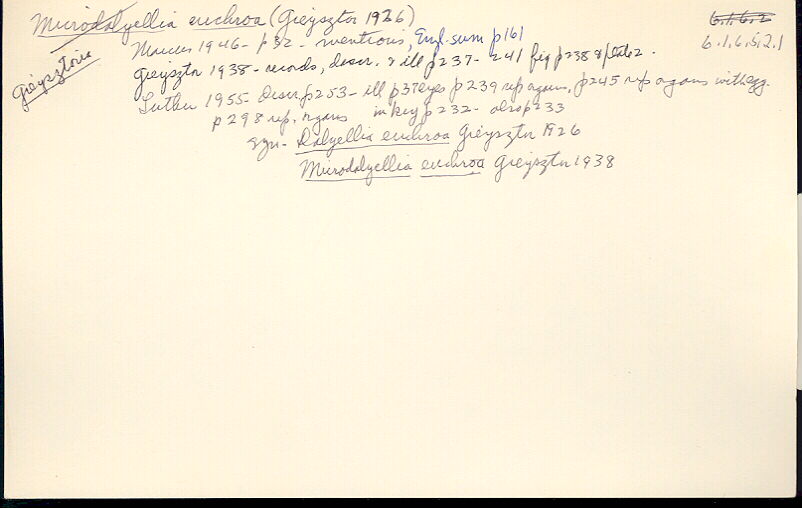 Microdalyellia euchroa (Gieysztor 1926)
6.1.6.2
Gieysztoria
6.1.6.5.2.1
Marcus 1946 - p32 - mentions, Engl. sum p161
Gieysztor 1938 - records, descr. & ill p237-241 fig p238 & plate 2.
Luther 1955 - Descr p253 - ill p37 eyes p239 rep organs, p245 rep organs with egg.
p298 rep. organs in key p232 - also p233
syn - Dalyellia euchroa Gieysztor 1926
Microdalyellia euchroa Gieysztor 1938